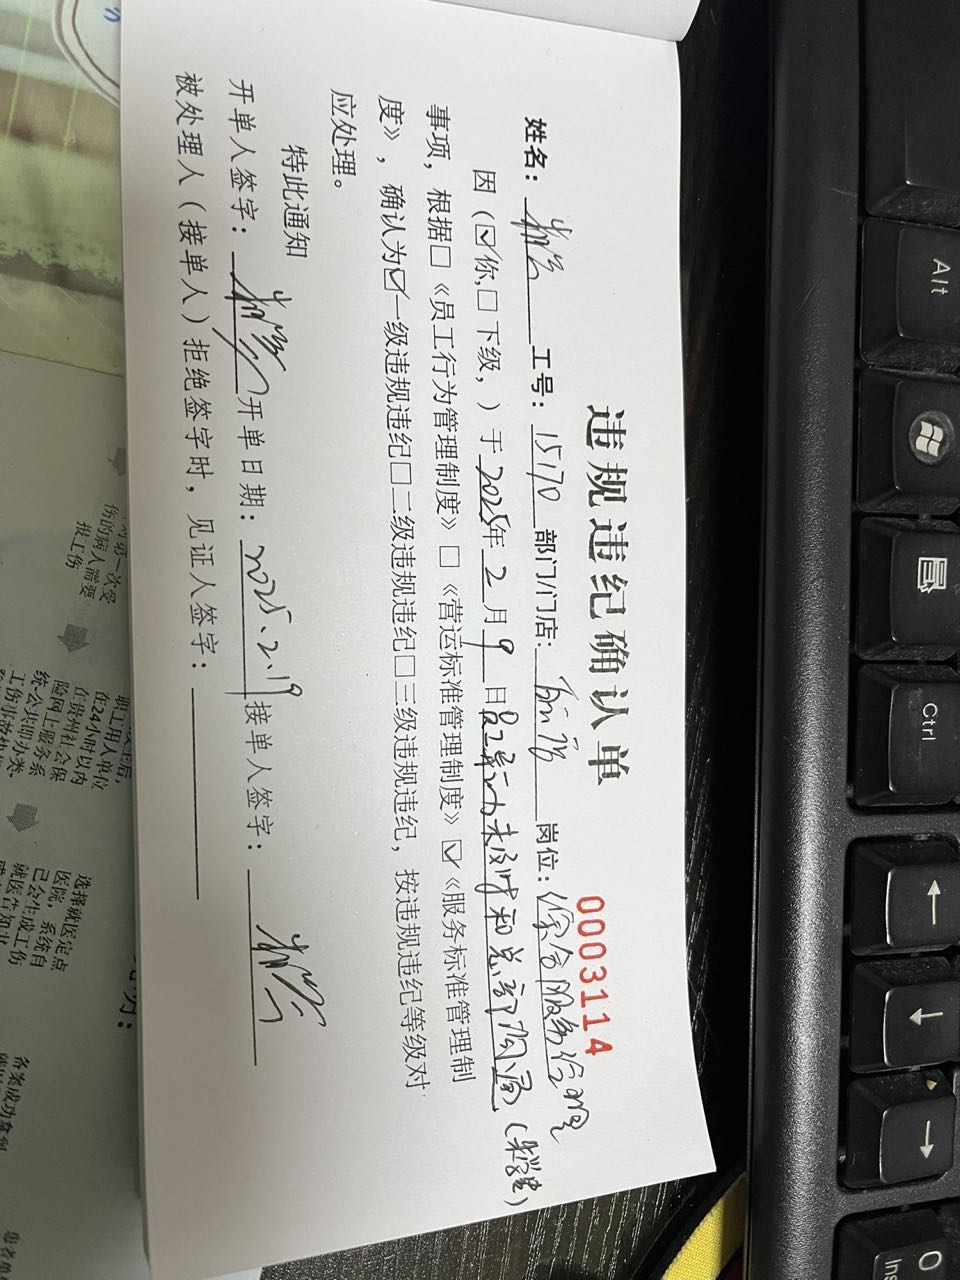 违规违纪确认单
0003114
姓名： 工号：15170 部门/门店： 岗位：综合服务经理
因（☑你，□下级，）于2025年2月9日 未及时和总部沟通
事项，根据□《员工行为管理制度》□《营运标准管理制度》☑《服务标准管理制
度》，确认为☑一级违规违纪□二级违规违纪□三级违规违纪，按违规违纪等级对
应处理。
特此通知
开单人签字： 开单日期：2025、2.19 接单人签字：
被处理人（接单人）拒绝签字时，见证人签字：
第一次受
伤的病人需要
报工伤
职工用人单位
在24小时以内
在贵州社会保
险网上服务系
统-公共即办类、
选择就医定点
医院，系统自
已会生成工伤
备案成功
Alt
Ctrl
←
↓
→
0